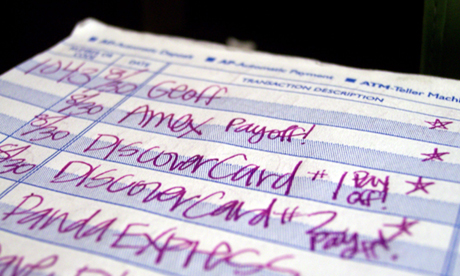 AP-Automatic Deposit ■ AP-Automatic Payment ■ ATM-Teller Machi
CODE DATE TRANSACTION DESCRIPTION
1043 5/30 Geoff
5/30 Amex Payoff! ☆
5/30 DiscoverCard #1 Pay off! ☆
5/30 DiscoverCard #2 Payoff! ☆
Panda EXPRESS